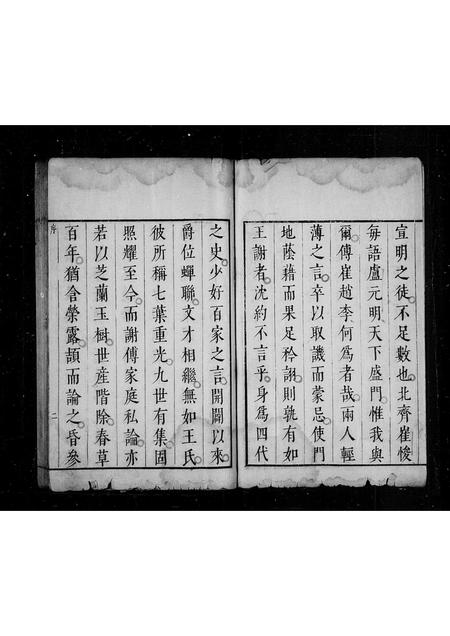 宣明之徒不足數也北齊崔㥄
每語盧元明天下盛門惟我與
爾傅崔趙李何爲者哉兩人輕
薄之言卒以取譏而蒙忌使門
地蔭藉而果足矜詡則孰有如
王謝者沈約不言乎身爲四代
之史少好百家之言開闢以來
爵位蟬聯文才相繼無如王氏
彼所稱七葉重光九世有集固
照耀至今而謝傅家庭私論亦
若以芝蘭玉樹世産階除春草
百年猶含榮露頡而論之昏參
序
二